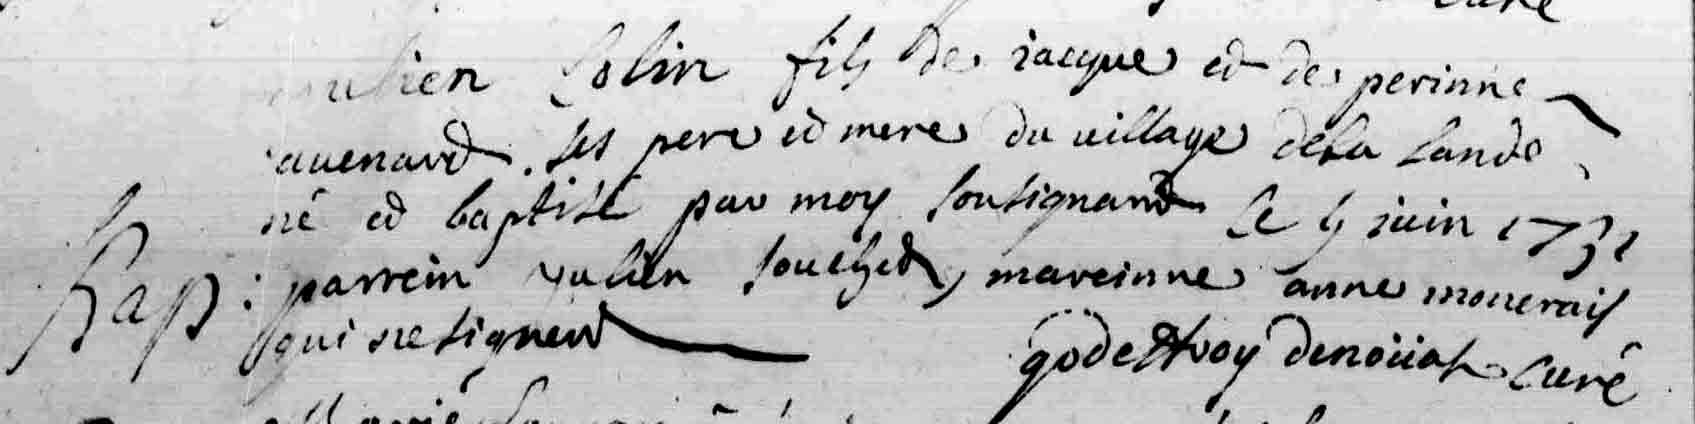 curé
julien Colin fils de jacque et de perinne
auenard ses pere et mere du uillage dela lande
né et baptisé par moy soussignant le 4 juin 1731
Bap: parrein julien souchet, mareinne anne monerais
qui ne signent
godeffroy curé